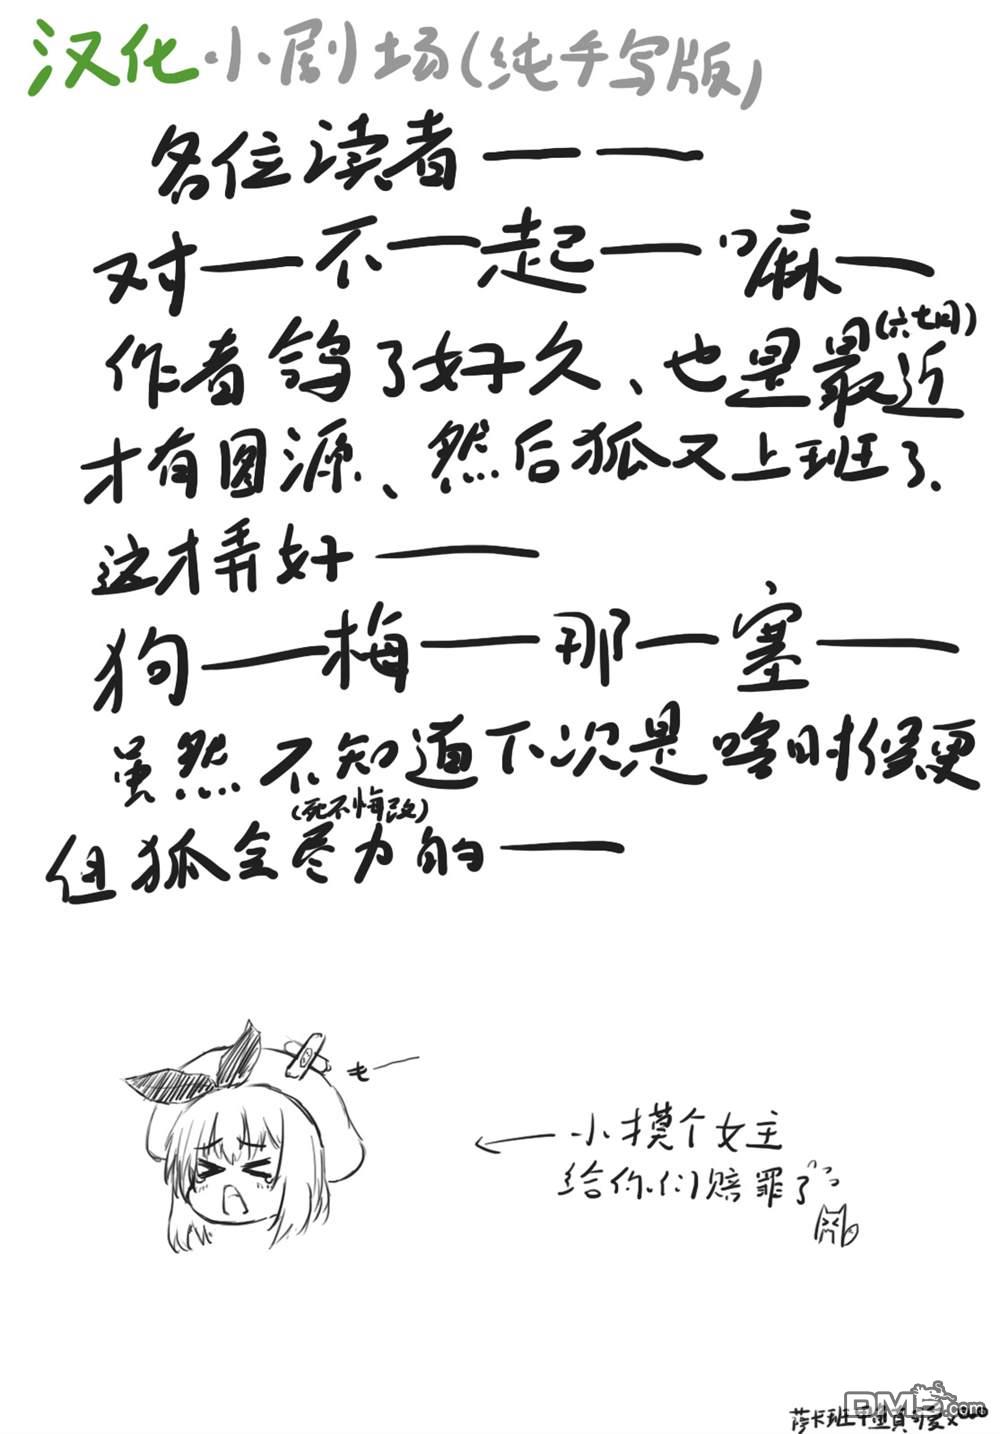 汉化小剧场(纯手写版)
各位读者——
对—不—起—嘛—
作者鸽了好久、也是最近(六七月)
才有图源、然后狐又上班了.
这才弄好——
狗—梅—那—塞—
虽然不知道下次是啥时候更
但狐全尽力的—
(死不悔改)
←小摸个女主
给你们赔罪了
DM5.com